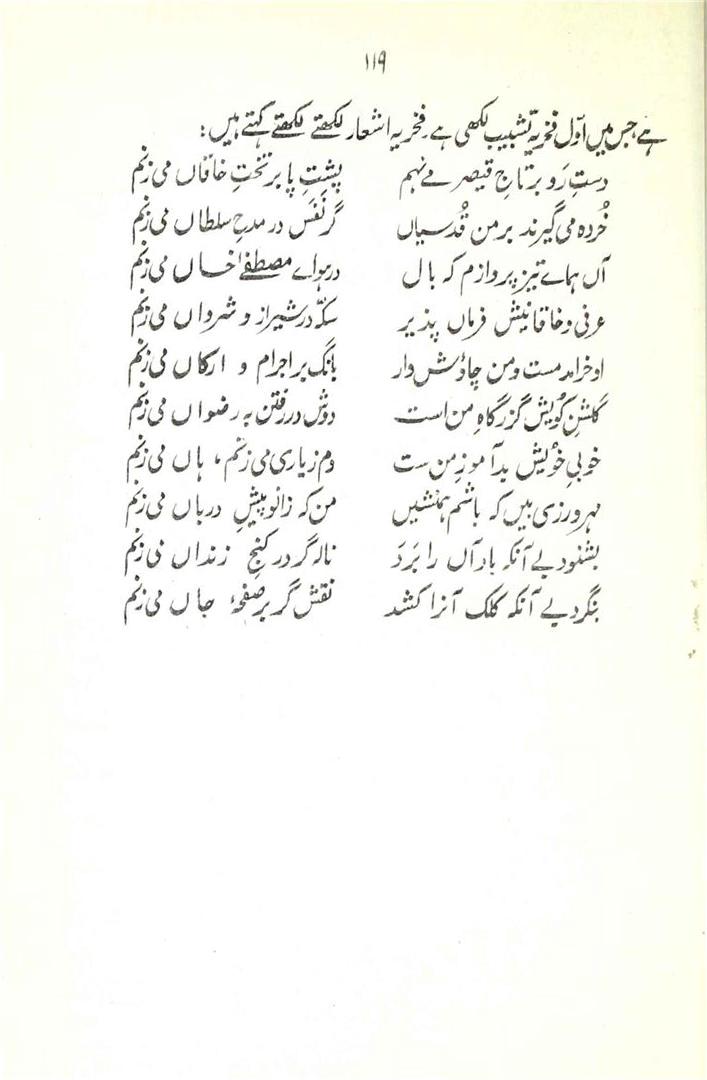 ۱۱۹
ہے جس میں اوّل فخریہ تشبیب لکھی ہے۔ فخریہ اشعار لکھتے لکھتے کہتے ہیں:
دستِ رَو بر تاجِ قیصر مے نہم پشتِ پا بر تختِ خاقاں می زنم
خُردہ می گیرند بر من قُدسیاں گر نَفَس در مدحِ سلطاں می زنم
آں ہماے تیز پروازم کہ بال در ہواے مصطفےٰ خاں می زنم
عرفی و خاقانیش فرماں پذیر سکّہ در شیراز و شرواں می زنم
او خرامد مست و من چاؤش وار بانگ بر اجرام و ارکاں می زنم
گلشنِ کُویش گزرگاہِ من است دوش در رفتن بہ رضواں می زنم
خوبیِ خُویش بدآموزِ من ست دم ز یاری می زنم، ہاں می زنم
مہرورزی بیں کہ باشم ہمنشیں من کہ زانو پیشِ درباں می زنم
بشنود بے آنکہ باد آں را بَرَد نالہ گر در کنجِ زنداں می زنم
بنگرد بے آنکہ کلک آنرا کشد نقش گر بر صفحۂ جاں می زنم